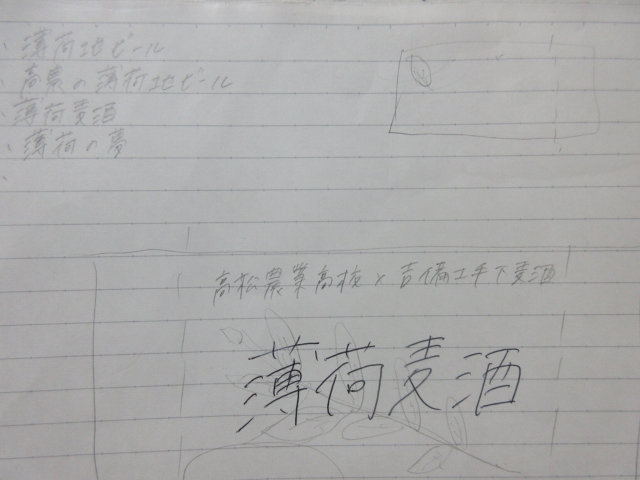 、薄荷地ビール
、高農の薄荷地ビール
、薄荷麦酒
、薄荷の夢
、
高松農業高校×吉備土手下麦酒
薄荷麦酒